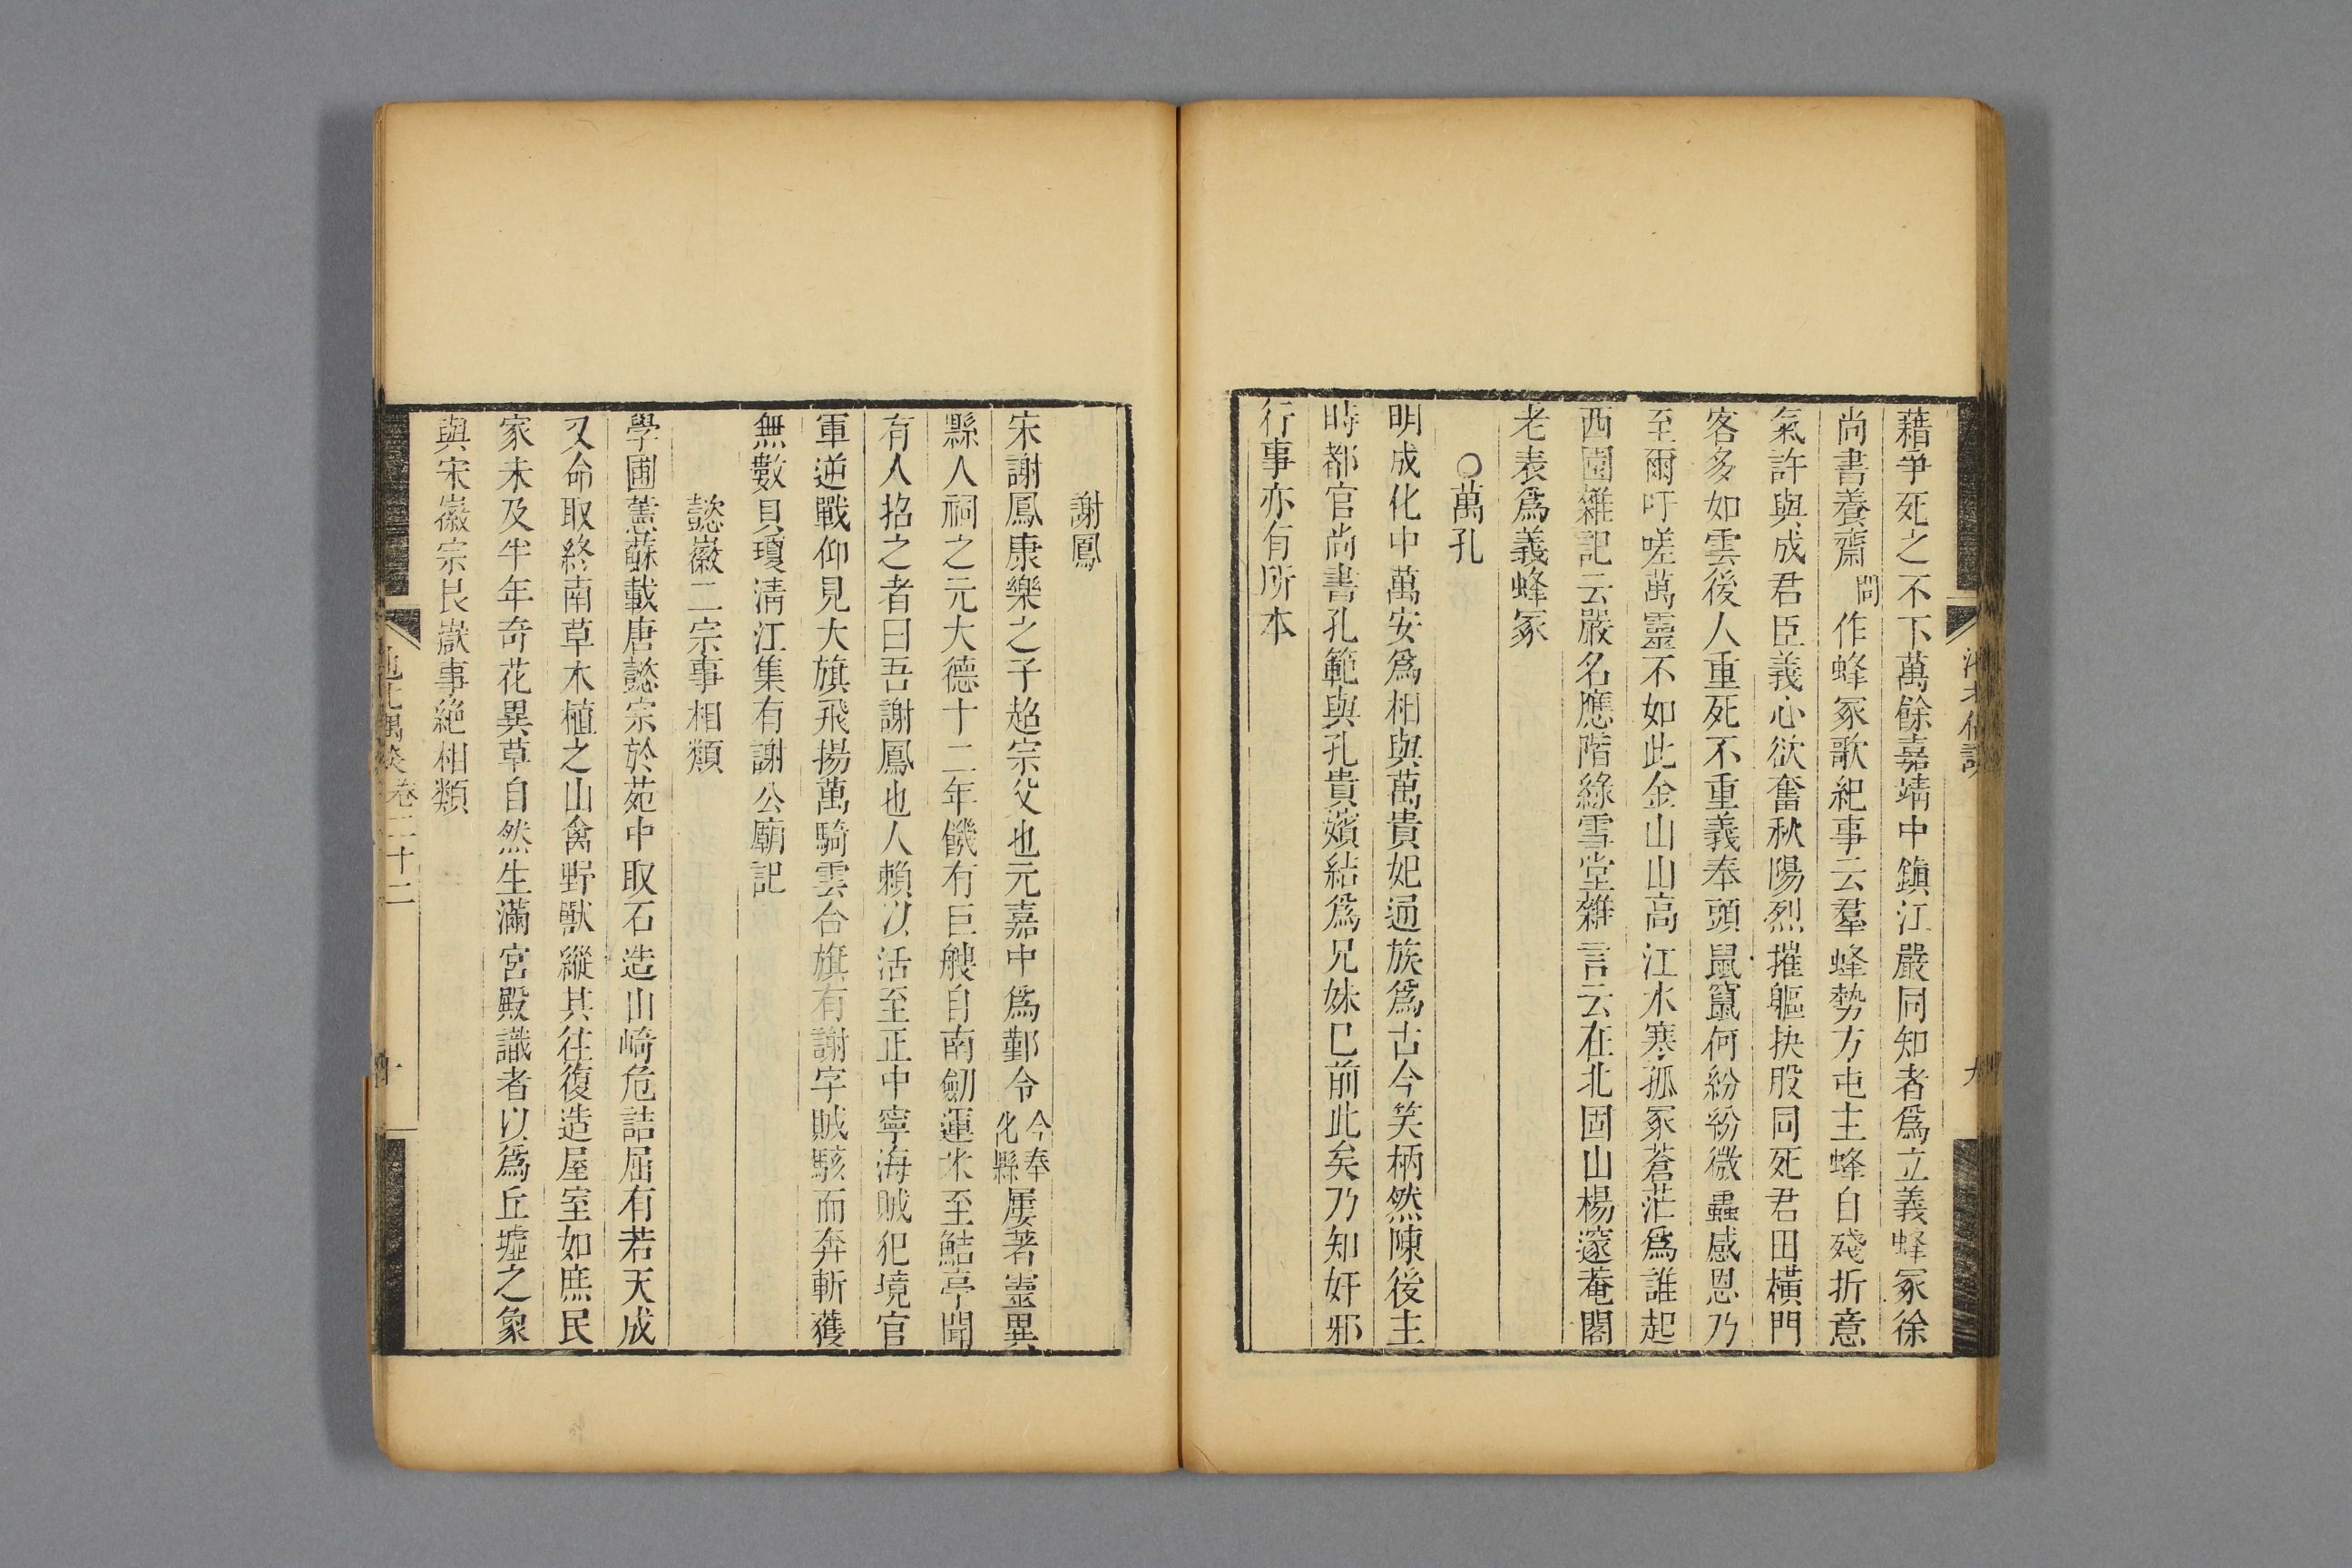 藉爭死之不下萬餘嘉靖中鎮江嚴同知者爲立義蜂冢徐
尚書養齋問作蜂冢歌紀事云羣蜂勢方屯主蜂自殘折意
氣許與成君臣義心欲奮秋陽烈摧軀抉股同死君田橫門
客多如雲後人重死不重義奉頭鼠竄何紛紛微蟲感恩乃
至爾吁嗟萬靈不如此金山山高江水寒孤冢蒼茫爲誰起
西園雜記云嚴名應階綠雪堂雜言云在北固山楊邃菴閣
老表爲義蜂冢
○萬孔
明成化中萬安爲相與萬貴妃通族爲古今笑柄然陳後主
時都官尚書孔範與孔貴嬪結爲兄妹已前此矣乃知奸邪
行事亦有所本
謝鳳
宋謝鳳康樂之子超宗父也元嘉中爲鄞令今奉化縣屢著靈異
縣人祠之元大德十二年饑有巨艘自南劒運米至鮚亭聞
有人招之者曰吾謝鳳也人賴以活至正中寧海賊犯境官
軍逆戰仰見大旗飛揚萬騎雲合旗有謝字賊駭而奔斬獲
無數貝瓊清江集有謝公廟記
懿徽二宗事相類
學圃蕙蘇載唐懿宗於苑中取石造山崎危詰屈有若天成
又命取終南草木植之山禽野獸縱其往復造屋室如庶民
家未及半年奇花異草自然生滿宮殿識者以爲丘墟之象
與宋徽宗艮嶽事絶相類
卷二十二